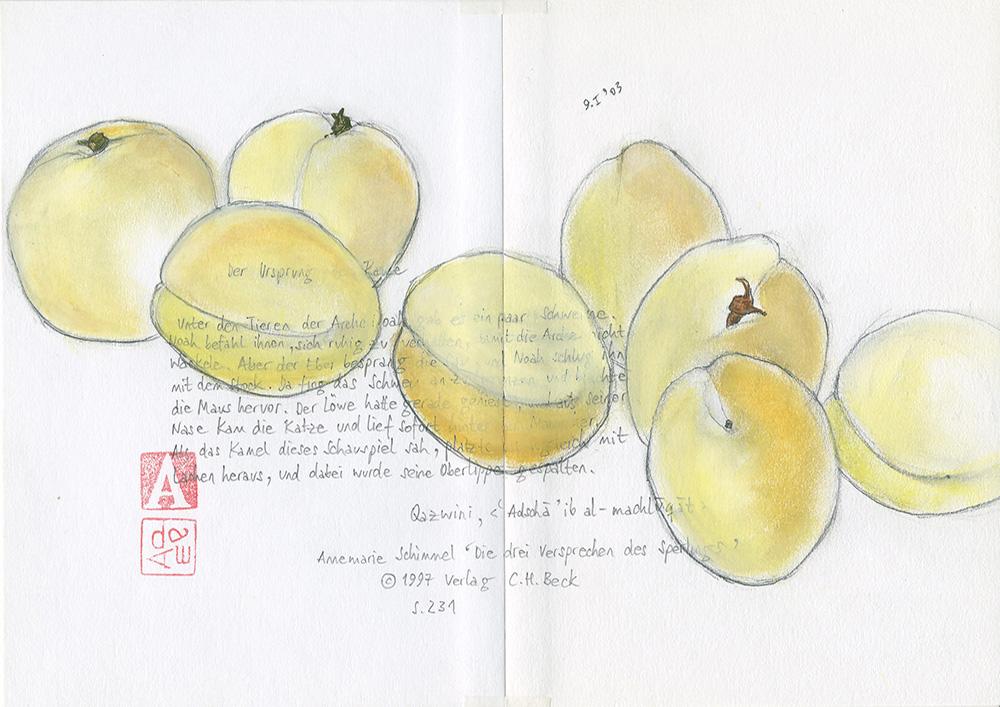 9.I'03
Der Ursprung der Katze
Unter den Tieren der Arche Noah gab es ein paar Schweine.
Noah befahl ihnen, sich ruhig zu verhalten, damit die Arche nicht
wackele. Aber der Eber besprang die und Noah schlug ihn
mit dem Stock. Da fing das Schwein an zu und brachte
die Maus hervor. Der Löwe hatte gerade geniest, und aus seiner
Nase kam die Katze und lief sofort hinter der Maus her.
Als das Kamel dieses Schauspiel sah, platzte es gleich mit
Lachen heraus, und dabei wurde seine Oberlippe gespalten.
Qazwini, <'Adschā'ib al-machlūqāt>
Annemarie Schimmel 'Die drei Versprechen des Sperlings'
© 1997 Verlag C.H. Beck
S.231
A